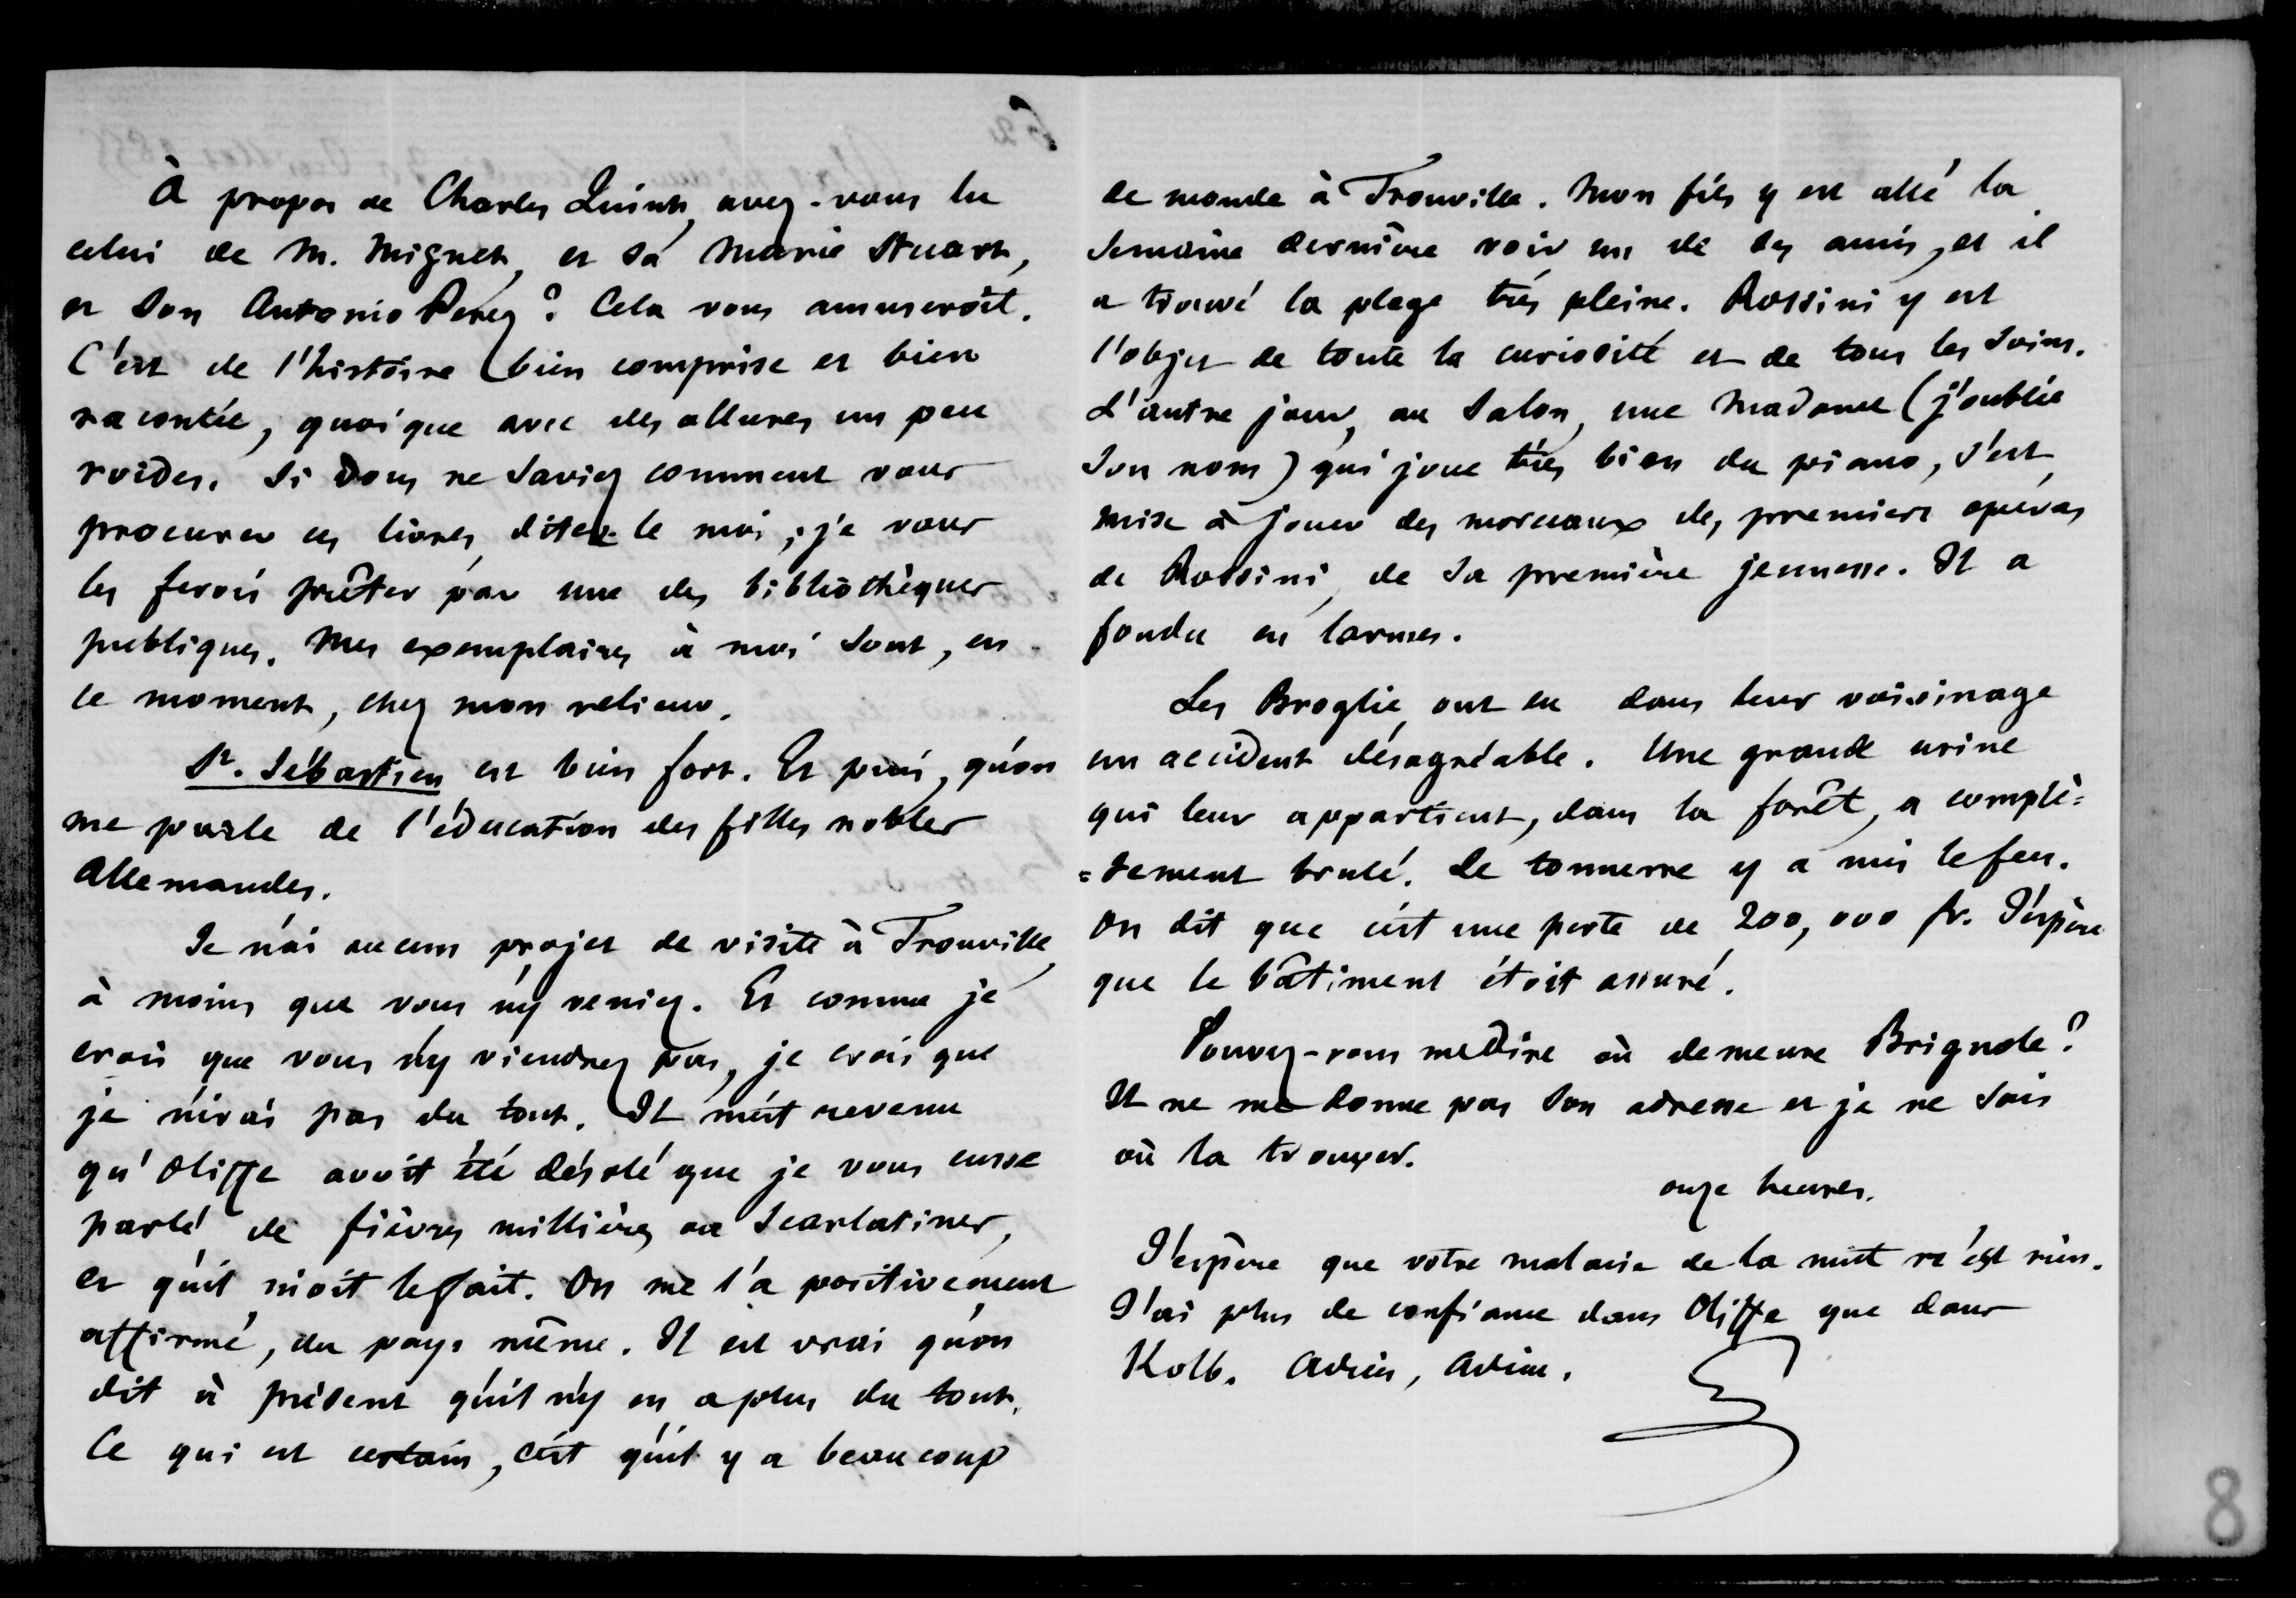 À propos de Charles Quint, avez-vous lu
celui de M. Mignet, et sa Marie Stuart,
et son Antonio Perez ? Cela vous amuseroit.
C'est de l'histoire bien comprise et bien
racontée, quoique avec des allures un peu
roides. Si vous ne saviez comment vous
procurer ces livres, dites-le moi ; je vous
les ferois prêter par une des bibliothèques
publiques. Mes exemplaires à moi sont, en
ce moment, chez mon relieur.
St. Sébastien est bien fort. Et puis, qu'on
me parle de l'éducation des filles nobles
Allemandes.
Je n'ai aucun projet de visite à Trouville,
à moins que vous n'y veniez. Et comme je
crois que vous n'y viendrez pas, je crois que
je n'irai pas du tout. Il m'est revenu
qu'Oliffe avoit été désolé que je vous eusse
parlé de fièvres millières ou scarlatines,
et qu'il nioit le fait. On me l'a positivement
affirmé, du pays même. Il est vrai qu'on
dit à présent qu'il n'y en a plus du tout.
Ce qui est certain, c'est qu'il y a beaucoup
de monde à Trouville. Mon fils y est allé la
semaine dernière voir un de ses amis, et il
a trouvé la plage très pleine. Rossini y est
l'objet de toute la curiosité et de tous les soins.
L'autre jour, au salon, une Madame (j'oublie
son nom) qui joue très bien du piano, s'est
mise à jouer des morceaux des premiers opéras
de Rossini, de sa première jeunesse. Il a
fondu en larmes.
Les Broglie ont eu dans leur voisinage
un accident désagréable. Une grande usine
qui leur appartient, dans la forêt, a complè=
=tement brulé. Le tonnerre y a mis le feu.
On dit que c'est une perte de 200,000 fr. J'espère
que le bâtiment étoit assuré.
Pouvez-vous me dire où demeure Brignole ?
Il ne me donne pas son adresse et je ne sais
où la trouver.
onze heures.
J'espère que votre malaise de la nuit n'est rien.
J'ai plus de confiance dans Oliffe que dans
Kolb. Adieu, Adieu.
8